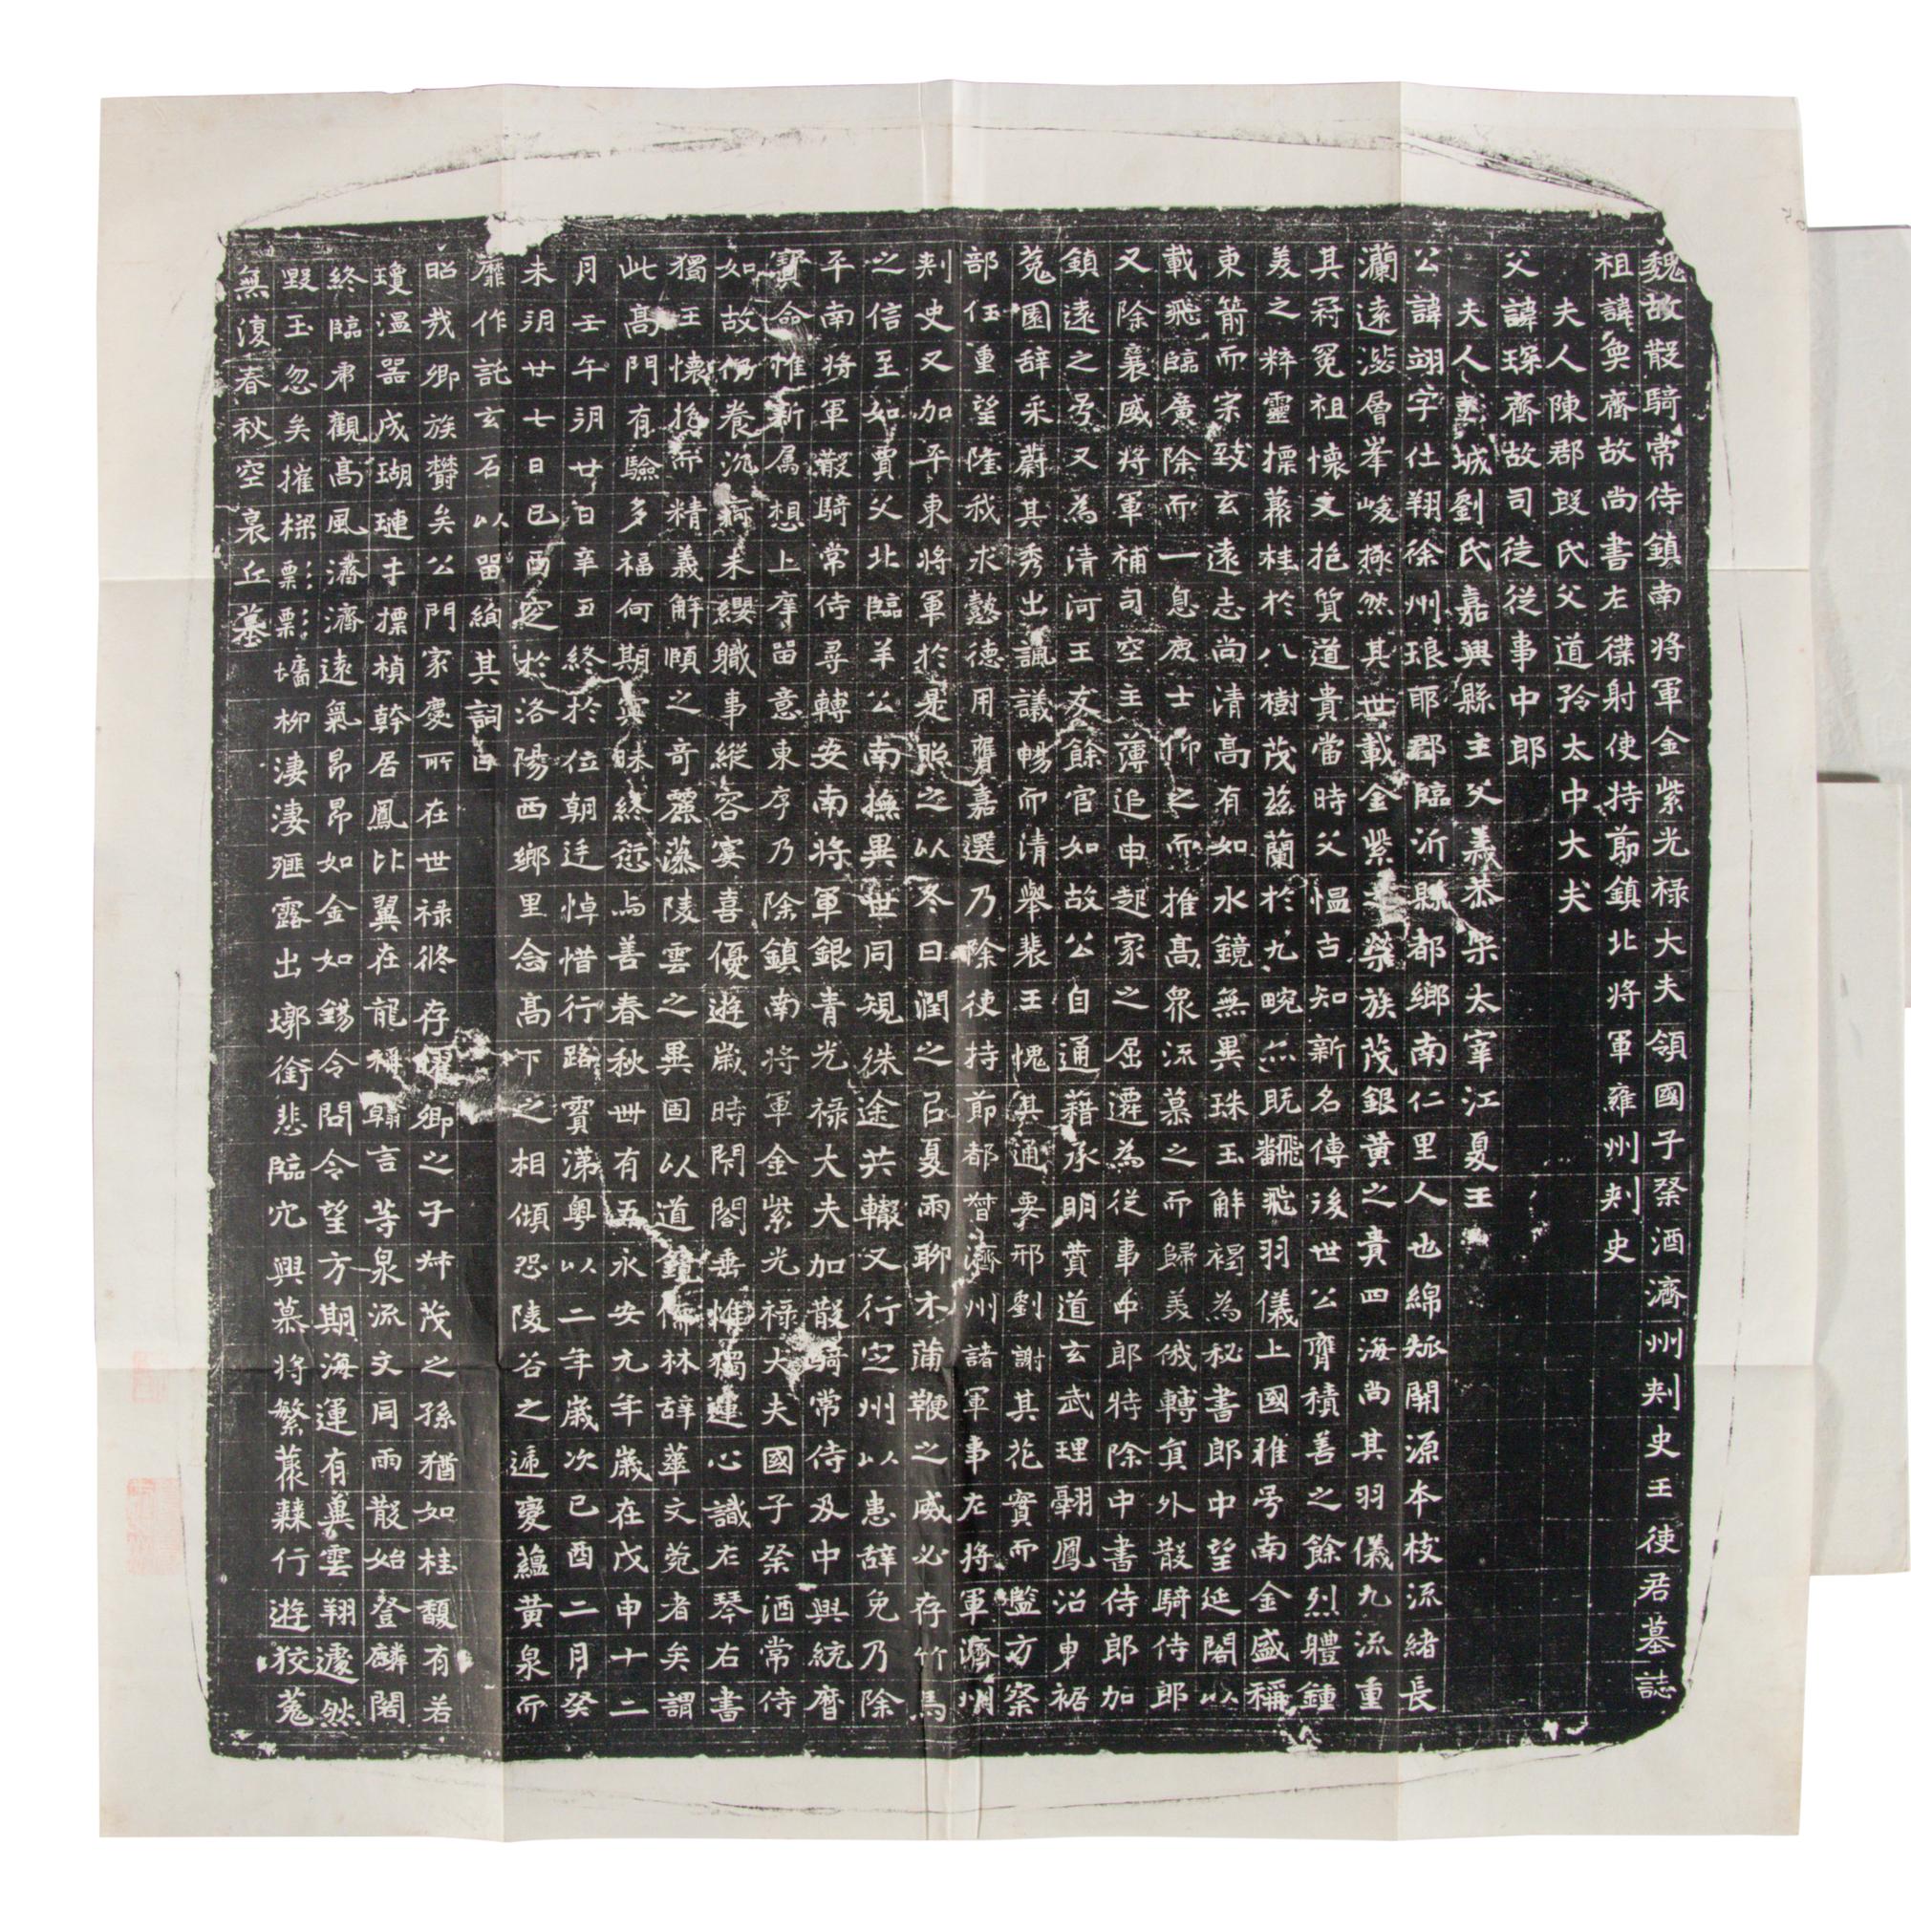 魏故散騎常侍鎮南將軍金紫光祿大夫領國子祭酒濟州刾史王使君墓誌
祖諱奐齊故尚書左僕射使持節鎮北將軍雍州刾史
夫人陳郡殷氏父道矜太中大夫
父諱琛齊故司徒從事中郎
夫人彭城劉氏嘉興縣主父義恭宋太宰江夏王
公諱翊字仕翔徐州琅耶郡臨沂縣都鄉南仁里人也綿脈開源本枝流緒長
瀾遠㴠層峯峻極然其世載金紫之榮族茂銀黃之貴四海尚其羽儀九流重
其冠冕祖懷文抱質道貴當時父愠古知新名傳後世公膺積善之餘烈體鍾
美之粹靈摽藂桂於八樹茂茲蘭於九畹亦既飜飛羽儀上國雅号南金盛稱
東箭而宗致玄遠志尚清高有如水鏡無異珠玉解褐為秘書郎中望延閣以
載飛臨廣除而一息庶士仰之而推高眾流慕之而歸美俄轉員外散騎侍郎
又除襄威將軍補司空主薄追申起家之屈遷為從事中郎特除中書侍郎加
鎮遠之号又為清河王友餘官如故公自通藉承明賁道玄武理翮鳳沼申裾
菟園辞采蔚其秀出諷議暢而清舉裴王愧其通要邢劉謝其花實而監方察
部任重望隆我求懿德用膺嘉選乃除使持節都督濟州諸軍事左將軍濟州
刾史又加平東將軍於是照之以冬日潤之百夏雨聊木蒲鞭之威必存竹馬
之信至如賈父北臨羊公南撫異世同規殊途共轍又行定州以患辞免乃除
平南將軍散騎常侍尋轉安南將軍銀青光祿大夫加散騎常侍及中興統曆
寶命惟新属想上庠留意東序乃除鎮南將軍金紫光祿大夫國子祭酒常侍
如故仍養沉痾未纓職事縱容宴喜優遊歲時閇閤垂帷獨運心識左琴右書
獨王懷抱而精義解頤之奇麗藻陵雲之異固以道鏡儒林辞華文菀者矣謂
此高門有驗多福何期與昧終愆与善春秋卌有五永安元年歲在戊申十二
月壬午朔廿日辛丑終於位朝廷悼惜行路賓涕粵以二年歲次己酉二月癸
未朔廿七日己酉窆於洛陽西鄉里念高下之相傾怨陵谷之遞變蘊黃泉而
靡作託玄石以留絢其詞曰
昭哉鄉族欝矣公門家慶所在世祿終存卿之子舛茂之孫猶如桂馥有若
瓊溫器成瑚璉才摽楨幹居鳳比翼在龍稱翰言等泉流文同雨散始登麟閣
終臨帝觀高風濟濟遠氣昂昂如金如錫令問令望方期海運有冀雲翔遽然
毀玉忽矣摧樑飄飄墻柳淒淒殣露出墎銜悲臨穴興慕將繁藂蕀行遊狡菟
無復春秋空哀丘墓